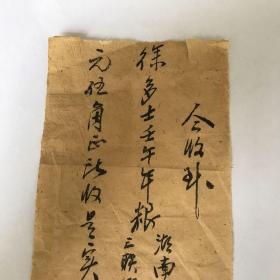 今收到
徐多士壬午年粮
湖南
三联
元伍角正此收是实